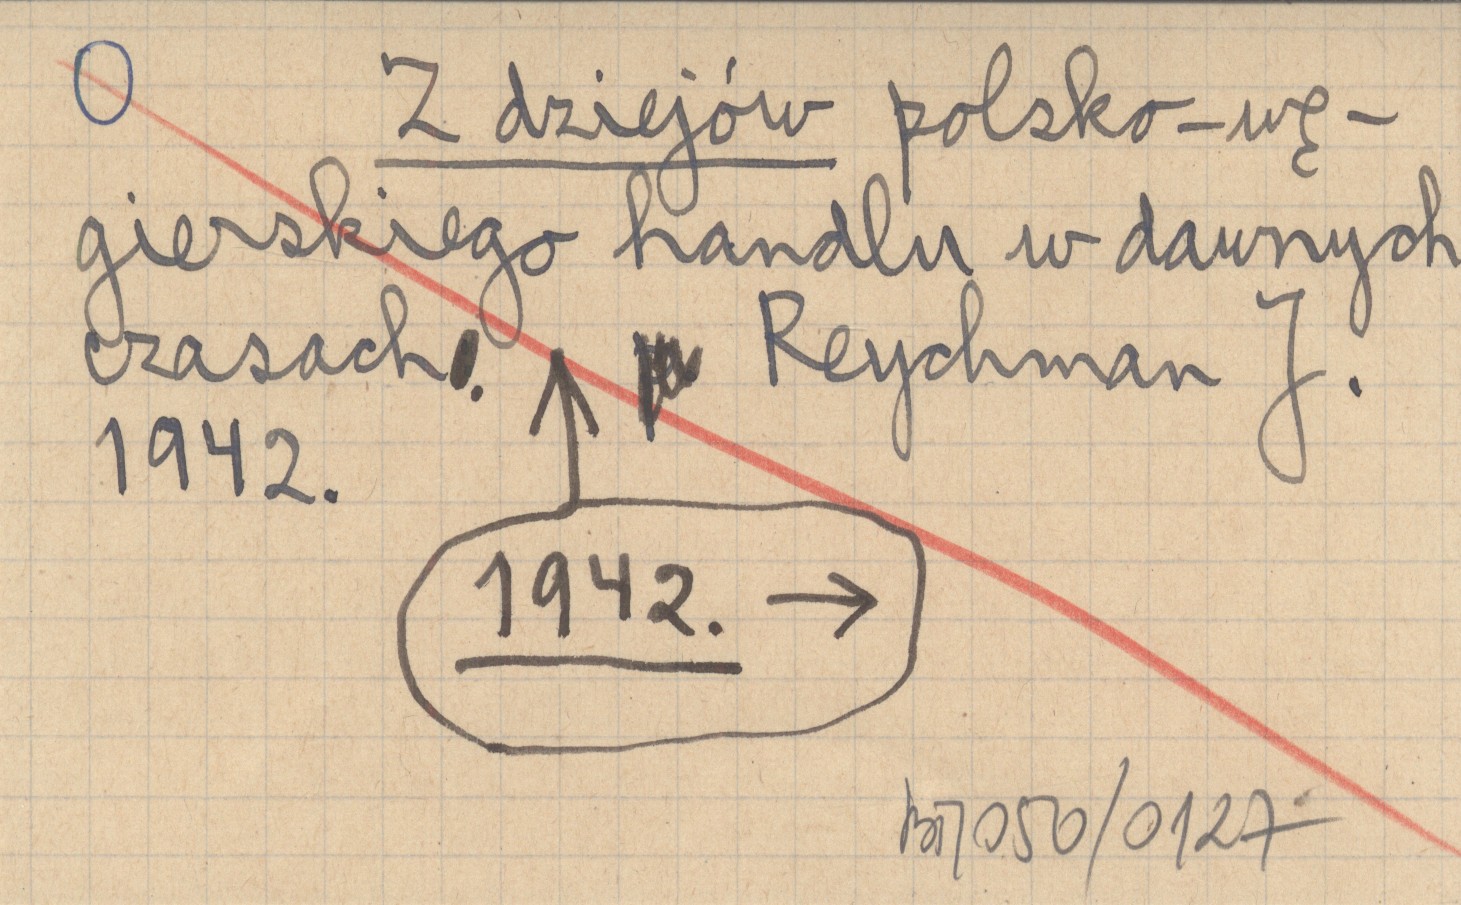 O Z dziejów polsko-wę-
gierskiego handlu w dawnych
czasach. Reychman J.
1942.
1942. →
050/0127